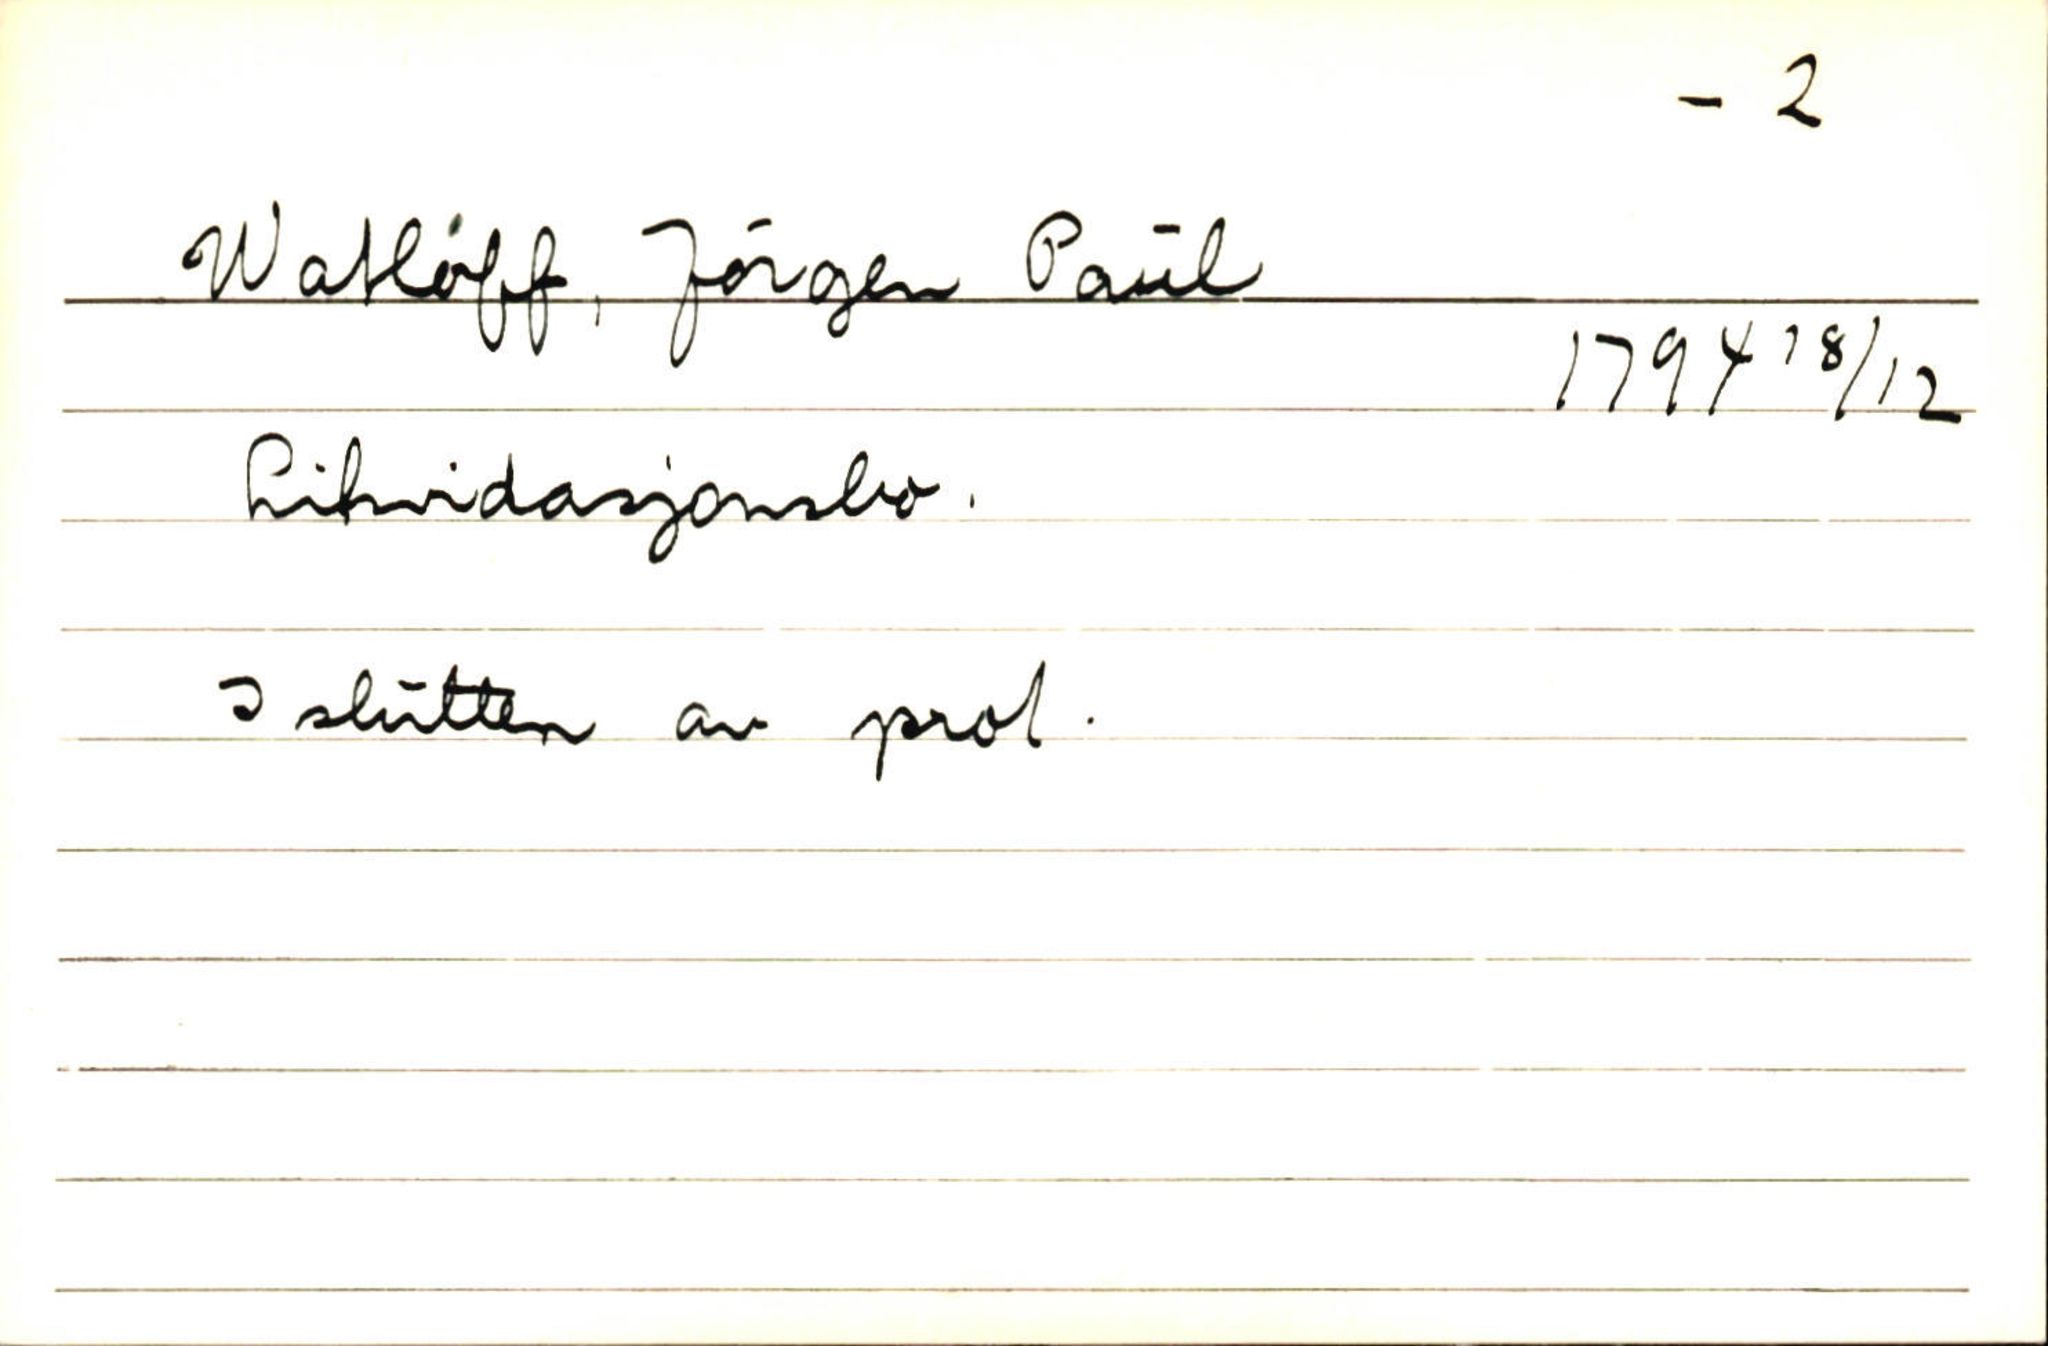 - 2
Watløff, Jörgen Paul
1794 18/12
Likvidasjonsbo.
I slutten av prot.